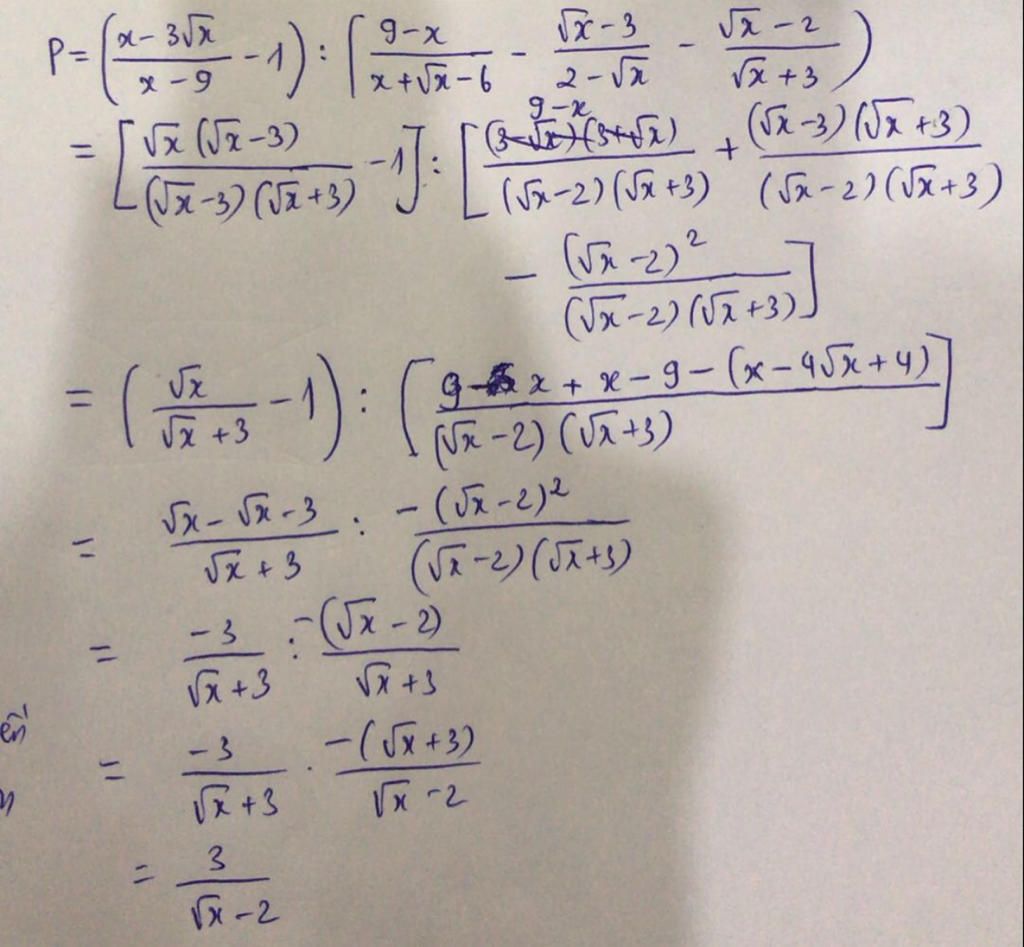 P = ( (x - 3√x)/(x - 9) - 1 ) : ( (9 - x)/(x + √x - 6) - (√x - 3)/(2 - √x) - (√x - 2)/(√x + 3) )
= [ √x (√x - 3)/((√x - 3)(√x + 3)) - 1 ] : [ (9 - x)/((√x - 2)(√x + 3)) + (√x - 3)(√x + 3)/((√x - 2)(√x + 3))
- (√x - 2)²/((√x - 2)(√x + 3)) ]
= ( √x/(√x + 3) - 1 ) : [ (9 - x + x - 9 - (x - 4√x + 4))/((√x - 2)(√x + 3)) ]
= (√x - √x - 3)/(√x + 3) : -(√x - 2)²/((√x - 2)(√x + 3))
= -3/(√x + 3) : -(√x - 2)/(√x + 3)
= -3/(√x + 3) . -(√x + 3)/(√x - 2)
= 3/(√x - 2)